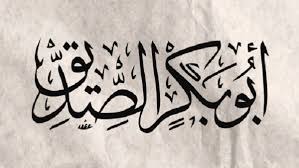 أَبُو بَكْرٍ الصِّدِّيق